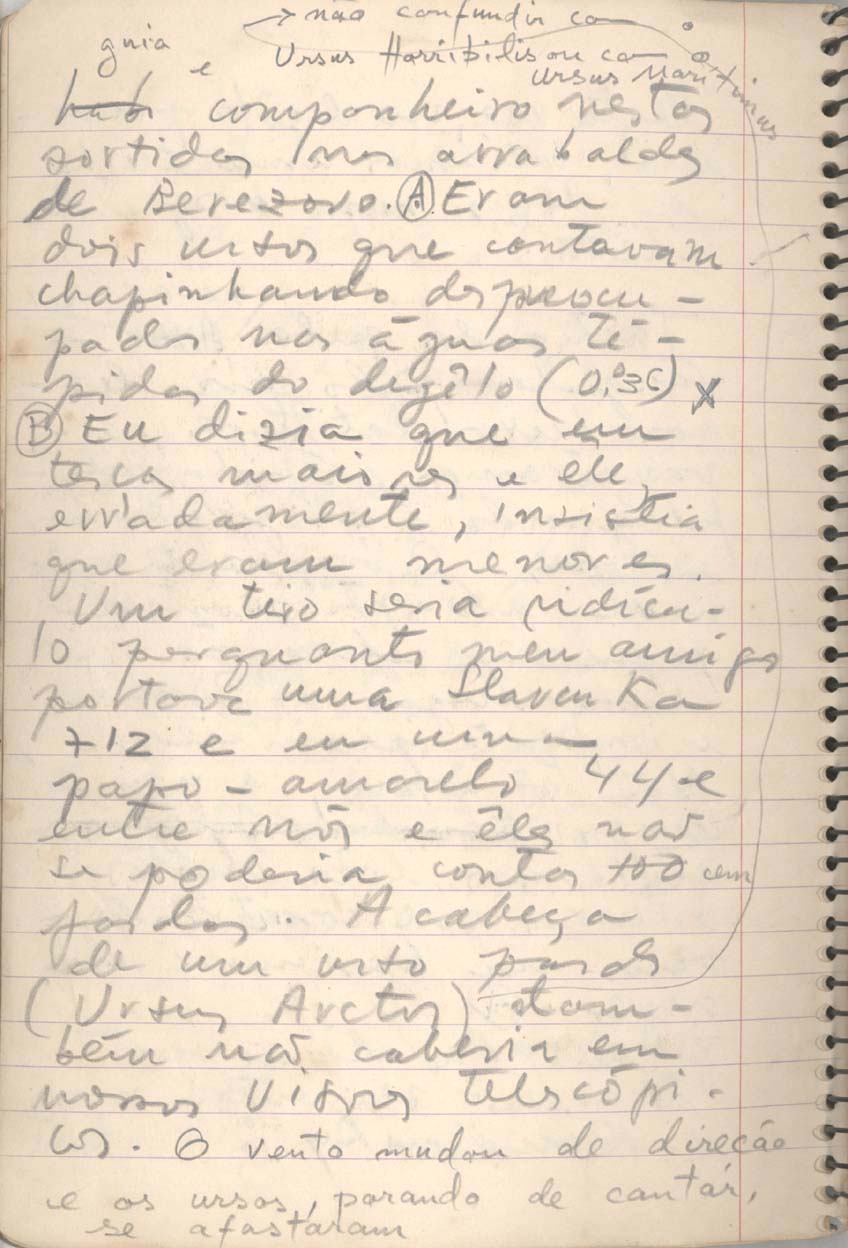 → não confundir com o
guia e Ursus Horribilis ou com o
Ursus Maritimus
companheiro nestas
sortidas nos arrabaldes
de Berezovo. (A) Eram
dois ursos que cantavam
chapinhando despreocu-
pados nas águas té-
pidas do degêlo (0,36) x
(B) Eu dizia que eu
maiores e êle,
erradamente, insistia
que eram menores.
Um tiro seria ridícu-
lo porquanto meu amigo
portava uma Slavenka
712 e eu uma
papo-amarelo 44 e
entre nós e êles não
se poderia contar 100 cem
jardas. A cabeça
de um urso pardo
(Ursus Arctos) tam-
bém não caberia em
nossos visores telescópi-
cos. O vento mudou de direção
e os ursos, parando de cantar,
se afastaram